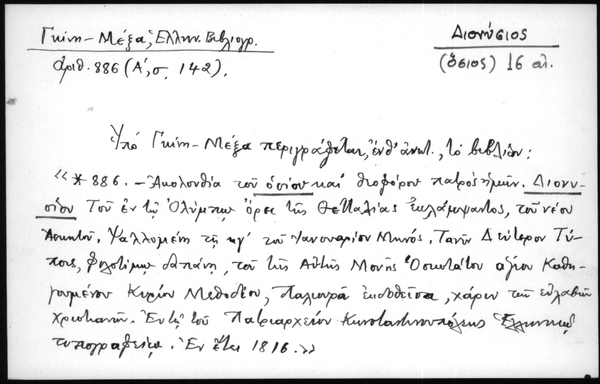 Γκίνη - Μέξα, Ἑλλην. Βιβλιογρ.
ἀριθ. 886 (Α', σ. 142).
Διονύσιος
(ὅσιος) 16 αἰ.
Ὑπὸ Γκίνη - Μέξα περιγράφεται, ἔνθ' ἀνωτ., τὸ βιβλίον:
«*886. - Ἀκολουθία τοῦ ὁσίου καὶ θεοφόρου πατρὸς ἡμῶν. Διονυ-
σίου Τοῦ ἐν τῷ Ὀλύμπῳ ὄρει τῆς Θετταλίας ἐκλάμψαντος, τοῦ νέου
Ἀσκητοῦ. Ψαλλομένη τῇ κγ' τοῦ Ἰανουαρίου Μηνός. Τανῦν Δεύτερον Τύ-
ποις, φιλοτίμῳ δαπάνῃ, τοῦ τῆς Αὐτῆς Μονῆς Ὁσιωτάτου ἁγίου Καθη-
γουμένου Κυρίου Μεθοδίου, Παλιουρᾶ ἐκδοθεῖσα, χάριν τῶν εὐλαβῶν
Χριστιανῶν. Ἐν τῷ τοῦ Πατριαρχείου Κωνσταντινουπόλεως Ἑλληνικῷ
τυπογραφείῳ. Ἐν ἔτει 1816.»